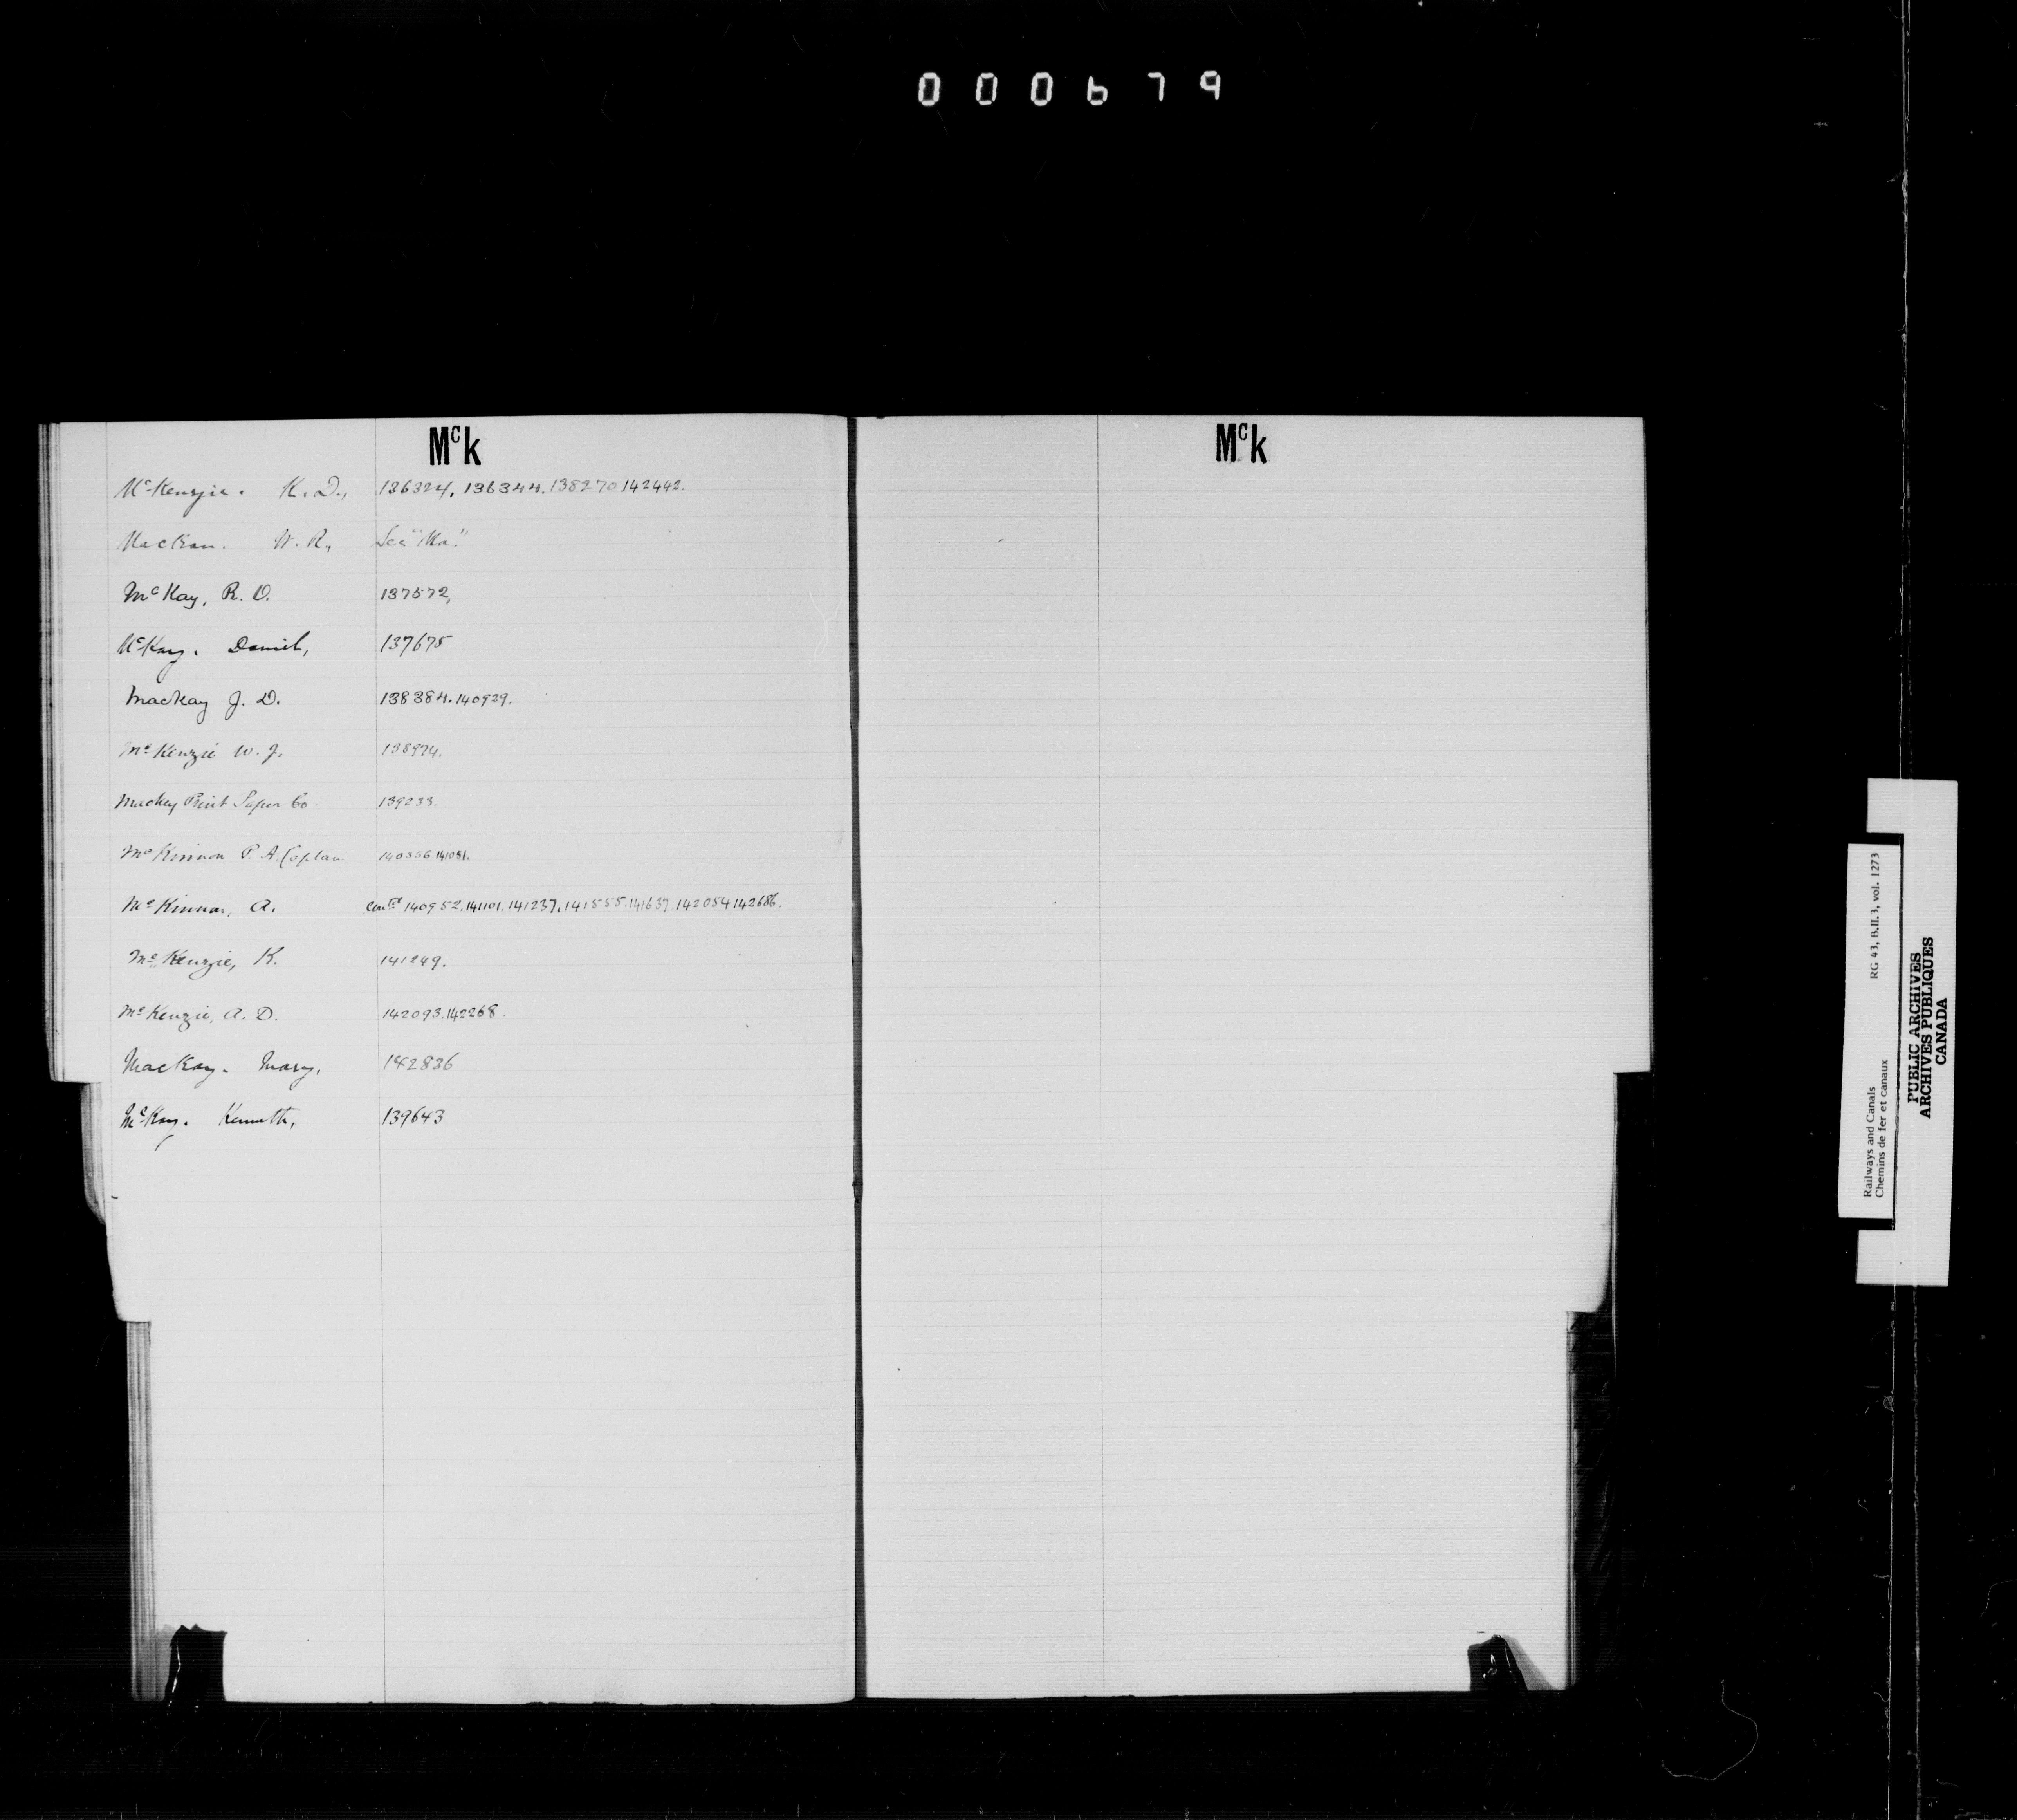 000679
Mck
McKenzie. K. D., 136324. 136344. 138270. 142442.
W. R., See "Ma."
McKay, R. D. 137572,
McKay. Daniel, 137675
MacKay J. D. 138384. 140929.
McKenzie W. J. 138974.
Mackey Print Paper Co. 139233.
McKinnon P. A. Captain 140356 141051.
McKinnon, A. Contd 140952. 141101. 141237. 141555. 141637. 142054 142686.
McKenzie, K. 141249.
McKenzie, A. D. 142093. 142268.
MacKay. Mary, 142836
McKay. Kenneth, 139643
Mck
Railways and Canals RG 43, B.II.3, vol. 1273
Chemins de fer et canaux
PUBLIC ARCHIVES
ARCHIVES PUBLIQUES
CANADA